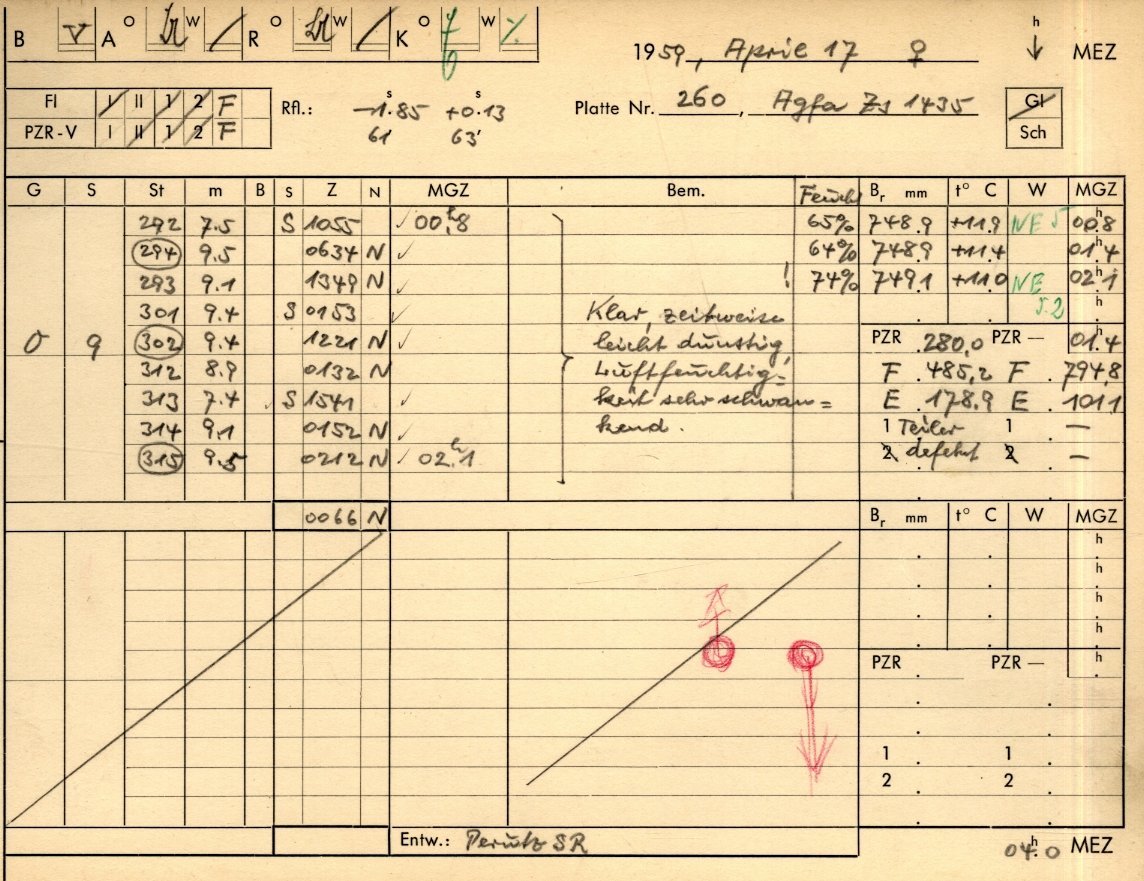 B V A O W R O W K O W
h
1959, April 17 ♀ ↓ MEZ
FI I II 1 2 F Rfl.: −1.ˢ85 +0.ˢ13 Platte Nr. 260, Agfa Zs 1435 Gl
PZR-V I II 1 2 F 61' 63' Sch
G S St m B S Z N MGZ Bem. Feucht Br mm t° C W MGZ
292 7.5 S 1055 ✓ 00ʰ.8 65% 748.9 +11.9 NE 5 00ʰ.8
294 9.5 0634 N ✓ 64% 748.9 +11.4 01ʰ.4
293 9.1 1349 N ✓ ! 74% 749.1 +11.0 NE 02ʰ.1
301 9.4 S 0153 ✓ Klar, zeitweise 5.2 h
0 9 302 9.4 1221 N ✓ leicht dunstig, PZR 280,0 PZR — 01ʰ.4
312 8.9 0132 N Luftfeuchtig= F 485,2 F 794,8
313 7.4 S 1541 ✓ keit sehr schwan= E 178.9 E 101.1
314 9.1 0152 N ✓ kend. 1 Teiler 1 —
315 9.5 0212 N ✓ 02ʰ.1 2 defekt 2 —
0066 N Br mm t° C W MGZ
h
h
h
h
PZR PZR — h
1 1
2 2
Entw.: Perutz SR 04ʰ.0 MEZ